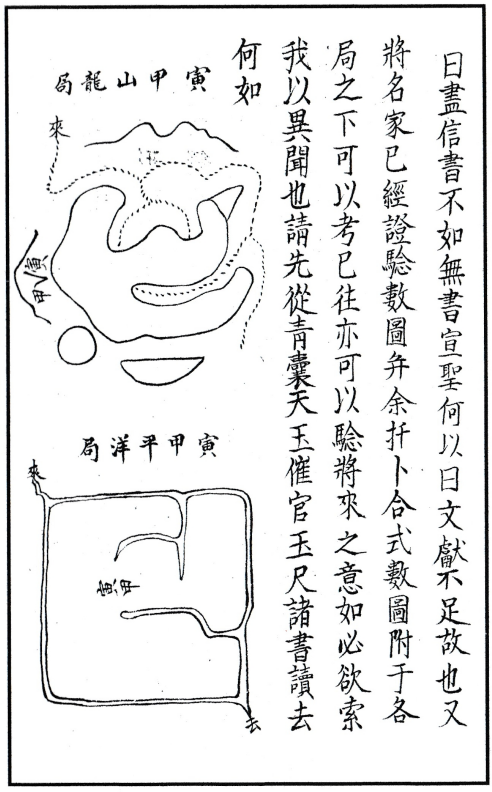 曰盡信書不如無書宣聖何以曰文獻不足故也又
將名家已經證驗數圖弁余扦卜合式數圖附于各
局之下可以考已往亦可以騐將來之意如必欲索
我以異聞也請先從青囊天玉催官玉尺諸書讀去
何如
寅甲山龍局
來
寅甲
寅甲平洋局
來
寅甲
去